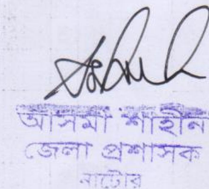 আসমা শাহীন
জেলা প্রশাসক
নাটোর